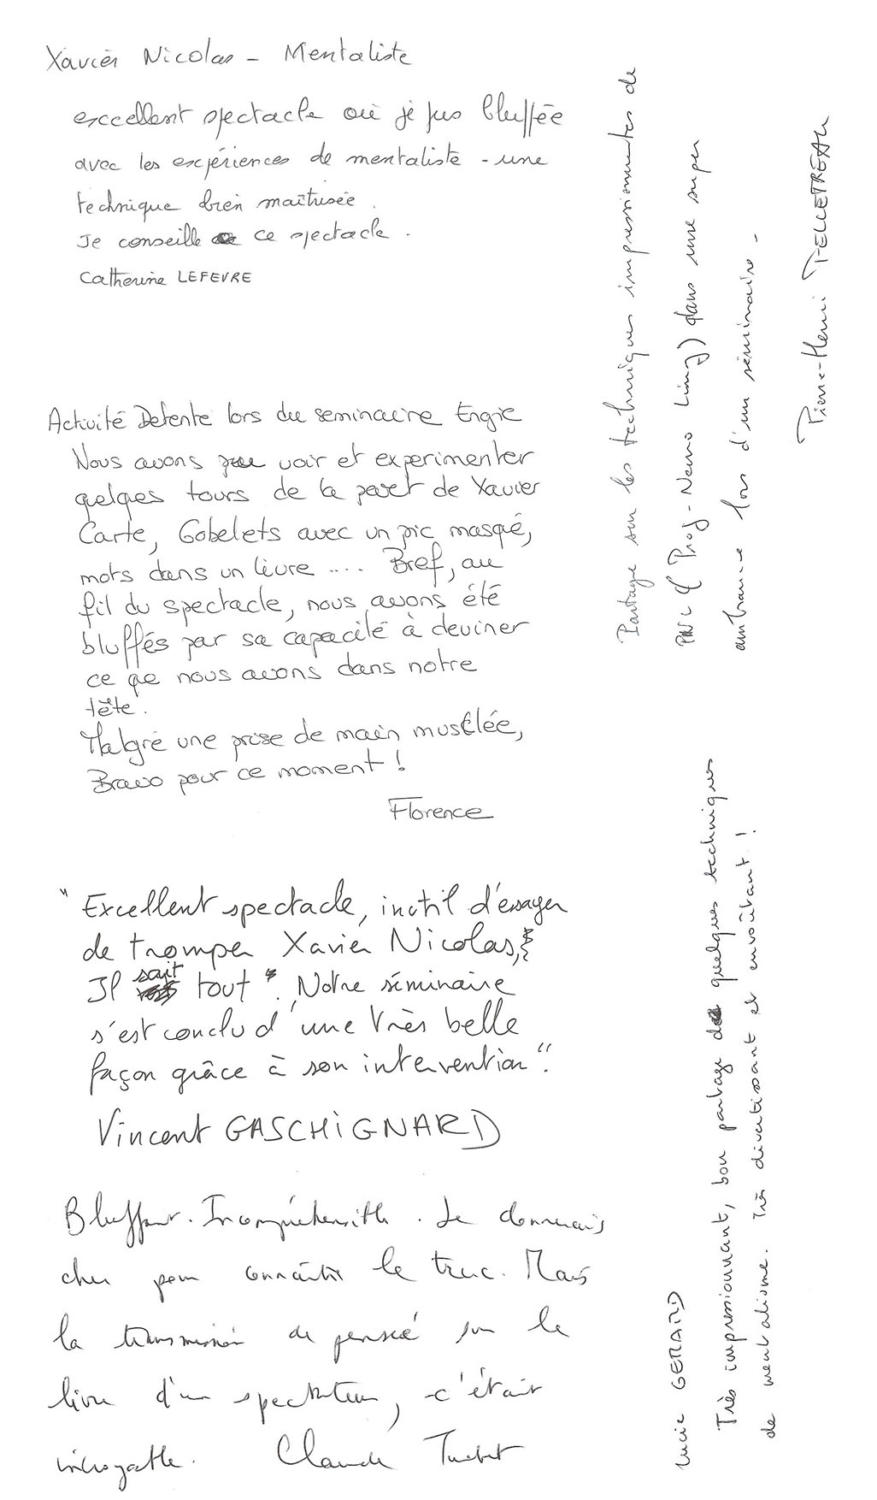 Xavier Nicolas - Mentaliste
excellent spectacle où je fus bluffée
avec les expériences de mentaliste - une
technique bien maîtrisée.
Je conseille ce spectacle.
Catherine LEFEVRE
Activité Detente lors du seminaire Engie
Nous avons pu voir et experimenter
quelques tours de la part de Xavier
Carte, Gobelets avec un pic masqué,
mots dans un livre .... Bref, au
fil du spectacle, nous avons été
bluffés par sa capacité à deviner
ce que nous avons dans notre
tête.
Malgré une prise de main musclée,
Bravo pour ce moment !
Florence
" Excellent spectacle, inutil d'essayer
de tromper Xavier Nicolas,
Il sait tout ". Notre séminaire
s'est conclu d'une très belle
façon grâce à son intervention".
Vincent GASCHiGNARD
Bluffant. Incompréhensible. Je donnerais
cher pour connaître le truc. Mais
la transmission de pensée sur le
livre d'un spectateur, c'était
incroyable. Claude
Partage sur les techniques impressionnantes de
PNL (Prog-Neuro Ling) dans une super
ambiance lors d'un séminaire -
Pierre-Henri PELLETREAU
Lucie GERARD
Très impressionnant, bon partage de quelques techniques
de mentalisme. Très divertissant et envoûtant !